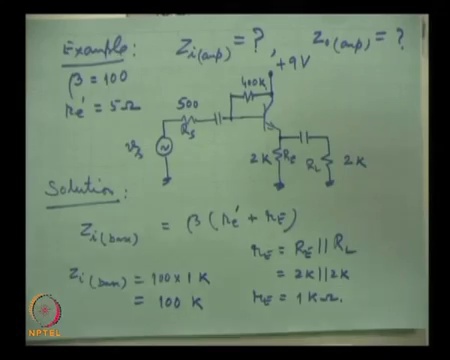 Example: Zi(amp) = ?, Zo(amp) = ?
β = 100
re' = 5Ω
+9V
400K
500
Rs
vs
2K RE
RL 2K
Solution:
Zi(base) = β (re' + rE)
rE = RE || RL
= 2K || 2K
rE = 1KΩ.
Zi(base) = 100 x 1 K
= 100 K
NPTEL